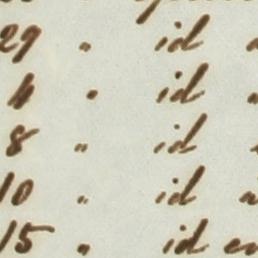 29 " id
4 " id
8 " id
10 " id
15 " id en